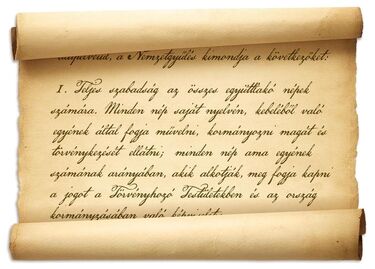 alapelvéül, a Nemzetgyűlés kimondja a következőket:
1. Teljes szabadság az összes együttlakó népek
számára. Minden nép saját nyelvén, kebeléből való
egyének által fogja művelni, kormányozni magát és
törvénykezését ellátni; minden nép ama egyének
számának arányában, akik alkotják, meg fogja kapni
a jogot a Törvényhozó Testületekben és az ország
kormányzásában való